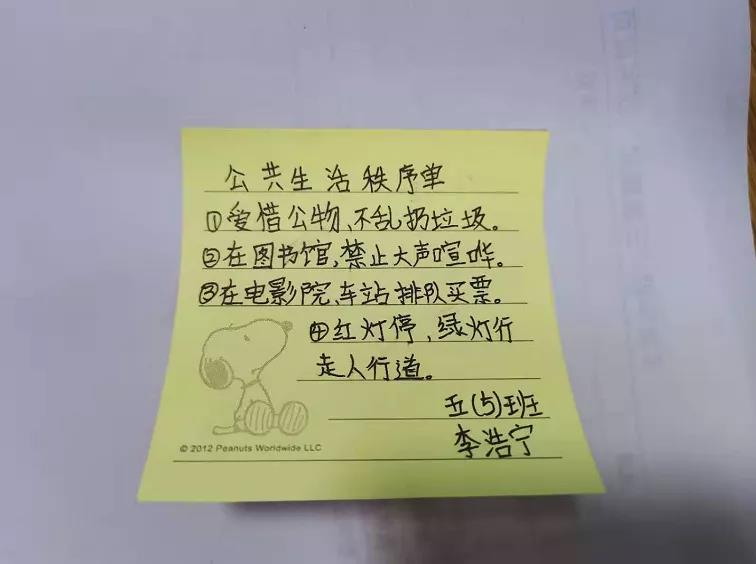 公共生活秩序单
①爱惜公物、不乱扔垃圾。
②在图书馆,禁止大声喧哗。
③在电影院、车站排队买票。
④红灯停,绿灯行
走人行道。
五(5)班
李浩宁
© 2012 Peanuts Worldwide LLC